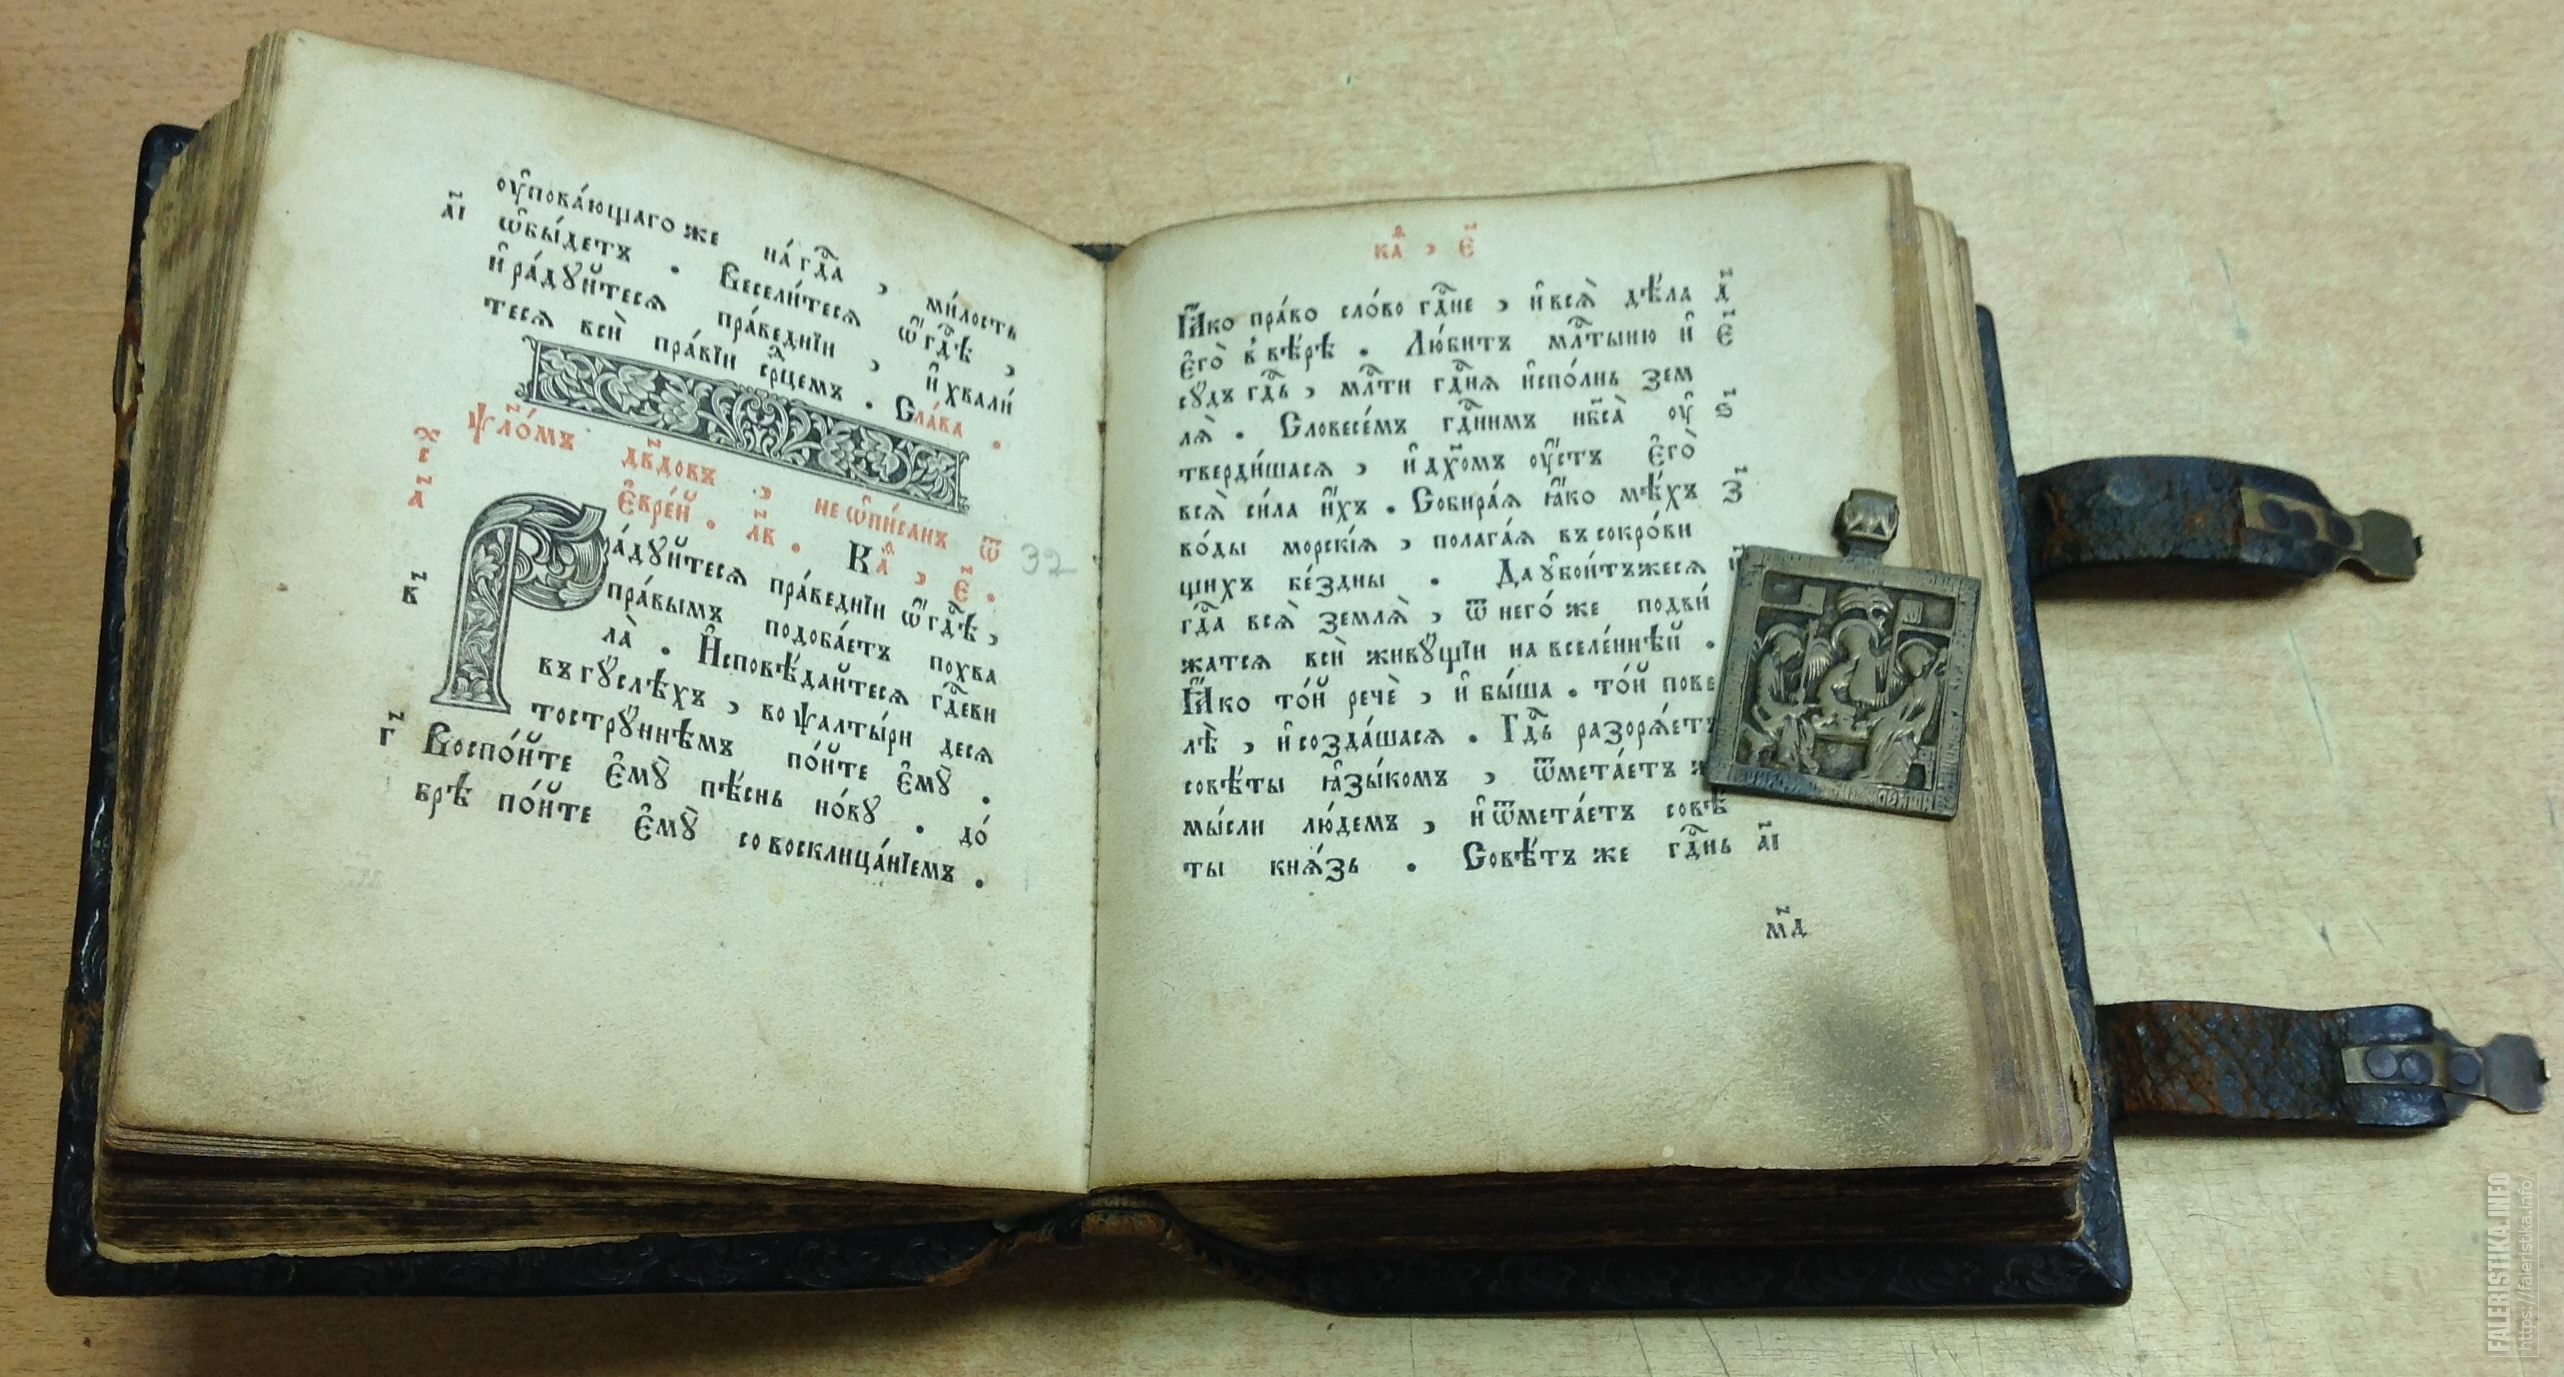 оу҆пова́ющаго же на́ гд҃а , ми́лость
а҃і ѡ҆бы́детъ . Весели́теся ѡ҆ гд҃ѣ ,
и҆ ра́дꙋйтеся пра́веднїи , и҆ хвали́
теся всѝ пра́вїи ср҃цемъ . Сла́ва .
ѱло́мъ дв҃довъ , не ѡ҆пи́санъ ѿ
є҆вре́й . л҃в . Каѳ , є҃ .
а҃ Ра́дꙋйтеся пра́веднїи ѡ҆ гд҃ѣ ,
в҃ пра́вымъ подоба́етъ похва
ла̀ . И҆сповѣ́дайтеся гд҃еви
въ гꙋ́слехъ , во ѱалты́ри деся
тострꙋ́ннѣмъ по́йте є҆мꙋ̀ .
г҃ Воспо́йте є҆мꙋ̀ пѣ́снь но́вꙋ . до́
брѣ по́йте є҆мꙋ̀ со восклица́нїемъ .
32
каѳ , є҃
Ꙗ҆́ко пра́во сло́во гд҃не , и҆ вся̀ дѣ́ла д҃
є҆го̀ в вѣ́рѣ . Лю́битъ мл҃тыню и҆ є҃
сꙋдъ гд҃ь , мл҃ти гд҃ня и҆спо́лнь зем
ля̀ . Словесе́мъ гд҃нимъ нб҃са̀ оу҆ ѕ҃
тверди́шася , и҆ дх҃омъ оу҆́стъ є҆го̀
вся̀ си́ла и҆́хъ . Собира́я ꙗ҆́ко мѣ́хъ з҃
во́ды морскі́я , полага́я въ сокро́ви
щихъ бе́здны . Да ᲂу҆бои́тъжеся
гд҃а вся̀ земля̀ , ѿ него́ же подви́
жатся всѝ живꙋ́щїи на вселе́ннѣй .
Ꙗ҆́ко то́й речѐ , и҆ бы́ша . то́й пове
лѣ̀ , и҆ созда́шася . Гд҃ь разоря́етъ
совѣ́ты ꙗ҆зы́комъ , ѿмета́етъ
мы́сли лю́демъ , и҆ ѿмета́етъ совѣ́
ты кня́зь . Совѣ́тъ же гд҃нь а҃і
м҃д
FALERISTIKA.INFO
https://faleristika.info/